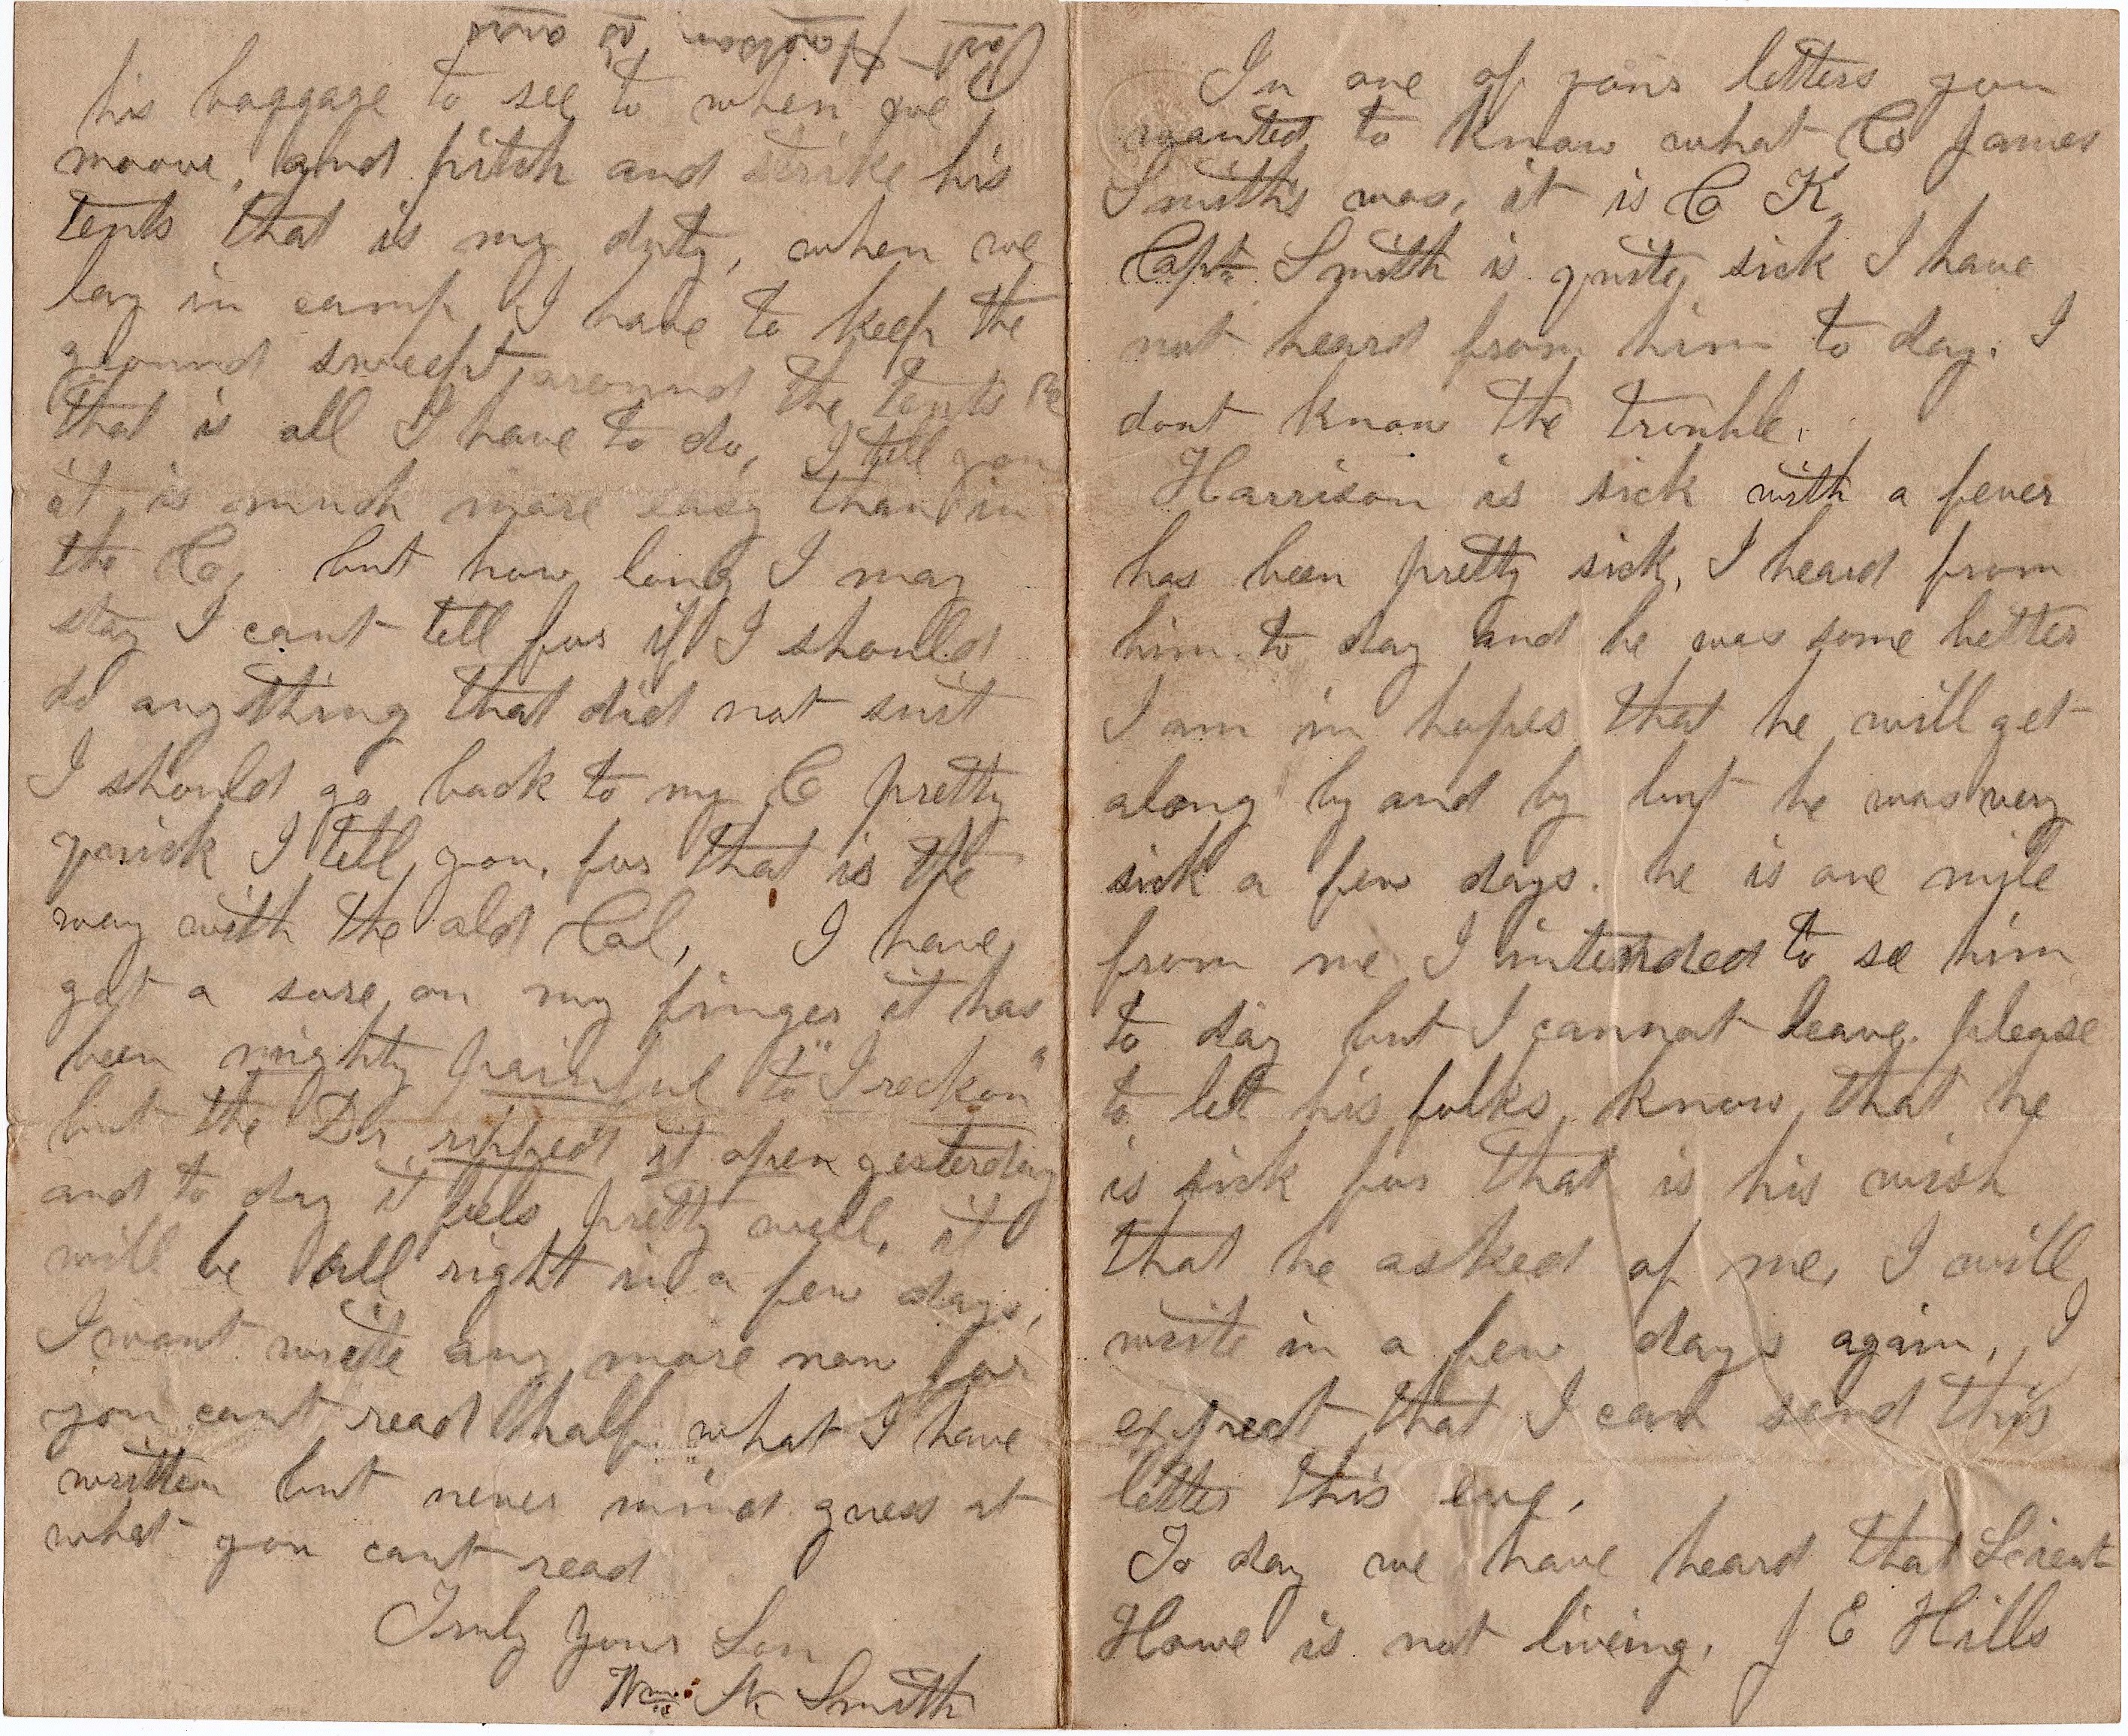 Port Hudson is ours
his baggage to see to when we
moove, and pitch and strike his
tents that is my duty, when we
lay in camp I have to keep the
ground sweept around the tents &c
that is all I have to do, I tell you
it is much more easy than in
the Co, but how long I may
stay I cant tell for if I should
do anything that did not suit
I should go back to my C pretty
quick I tell you, for that is the
way with the old Col, I have
got a sore on my finger it has
been mighty painful to "I reckon"
but the Dr ripped it open yesterday
and to day it feels pretty well, it
will be all right in a few days,
I want write any more now for
you cant read half what I have
written but never mind guess at
what you cant read
Truly your Son
Wm. N Smith
In one of yours letters you
wanted to know what Co James
Smiths was, it is C K,
Capt Smith is quite sick I have
not heard from him to day. I
dont know the trouble.
Harrison is sick with a fever
has been pretty sick, I heard from
him to day and he was some better
I am in hopes that he will get
along by and by but he was very
sick a few days. he is one mile
from me I intended to se him
to day but I cannot leave. please
to let his folks know that he
is sick for that is his wish
that he asked of me, I will
write in a few days again, I
expect that I can send this
letter this eve.
To day we have heard that Lieut
Howe is not liveing, J E Hills